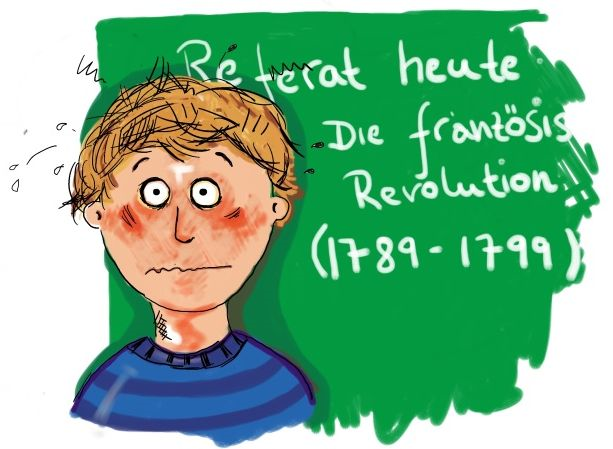 Referat heute
Die französis
Revolution
(1789-1799)